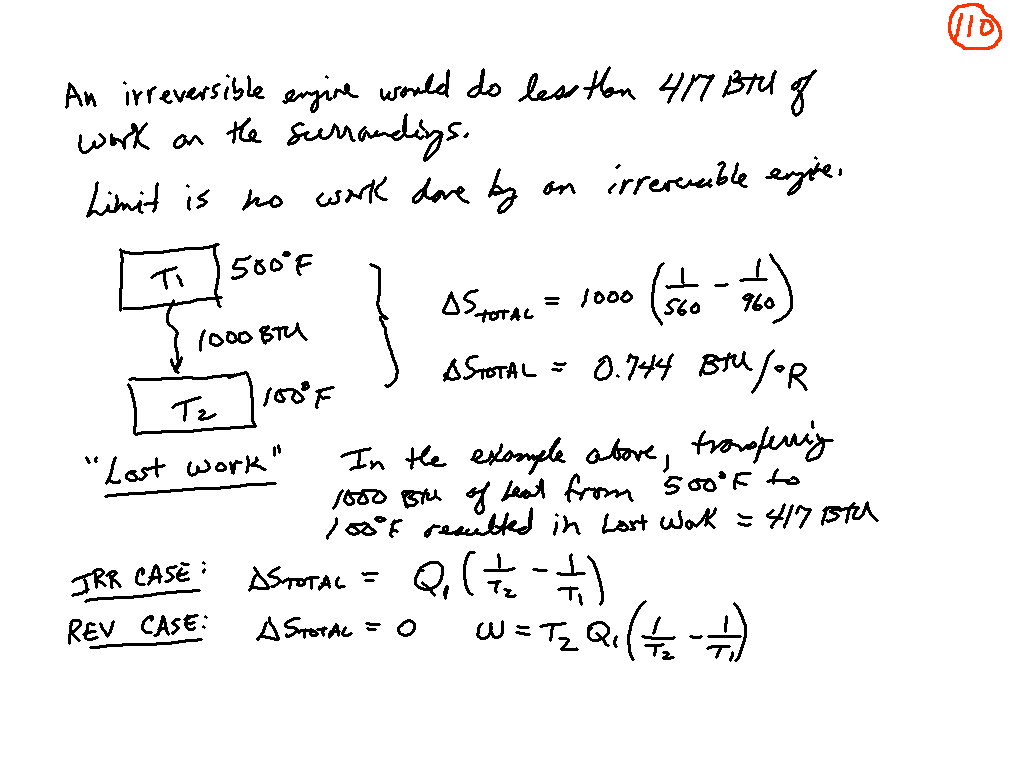 110
An irreversible engine would do less than 417 BTU of
work on the surroundings.
Limit is no work done by an irreversible engine.
T1 500°F
1000 BTU
T2 100°F
ΔS_TOTAL = 1000 (1/560 - 1/960)
ΔS_TOTAL = 0.744 BTU/°R
"Lost Work" In the example above, transferring
1000 BTU of heat from 500°F to
100°F resulted in Lost Work = 417 BTU
IRR CASE: ΔS_TOTAL = Q₁ (1/T₂ - 1/T₁)
REV CASE: ΔS_TOTAL = 0 W = T₂ Q₁ (1/T₂ - 1/T₁)